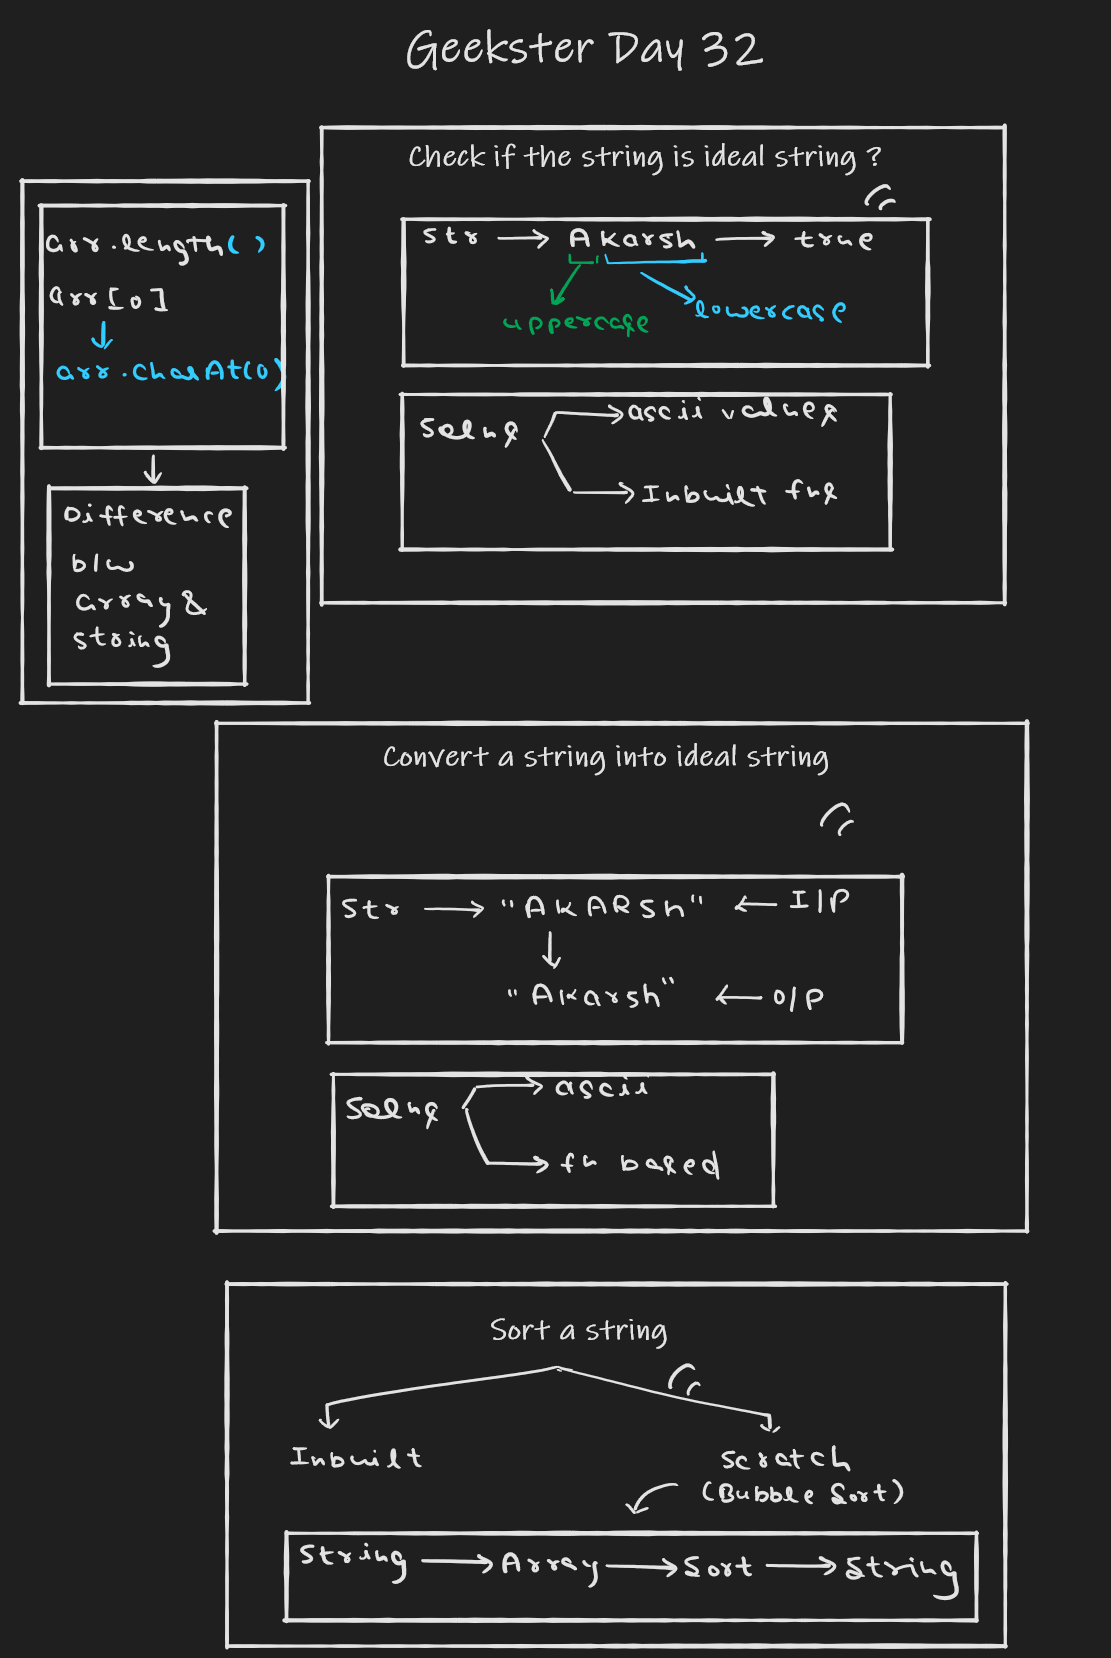 Geekster Day 32
arr.length()
arr[0]
arr.charAt(0)
Difference
b/w
array &
string
Check if the string is ideal string ?
str → Akarsh → true
uppercase
lowercase
Solns
ascii values
Inbuilt fns
Convert a string into ideal string
Str → "AKARSh" ← I/P
"Akarsh" ← O/P
Solns
ascii
fn based
Sort a string
Inbuilt
Scratch
(Bubble Sort)
String → Array → Sort → String